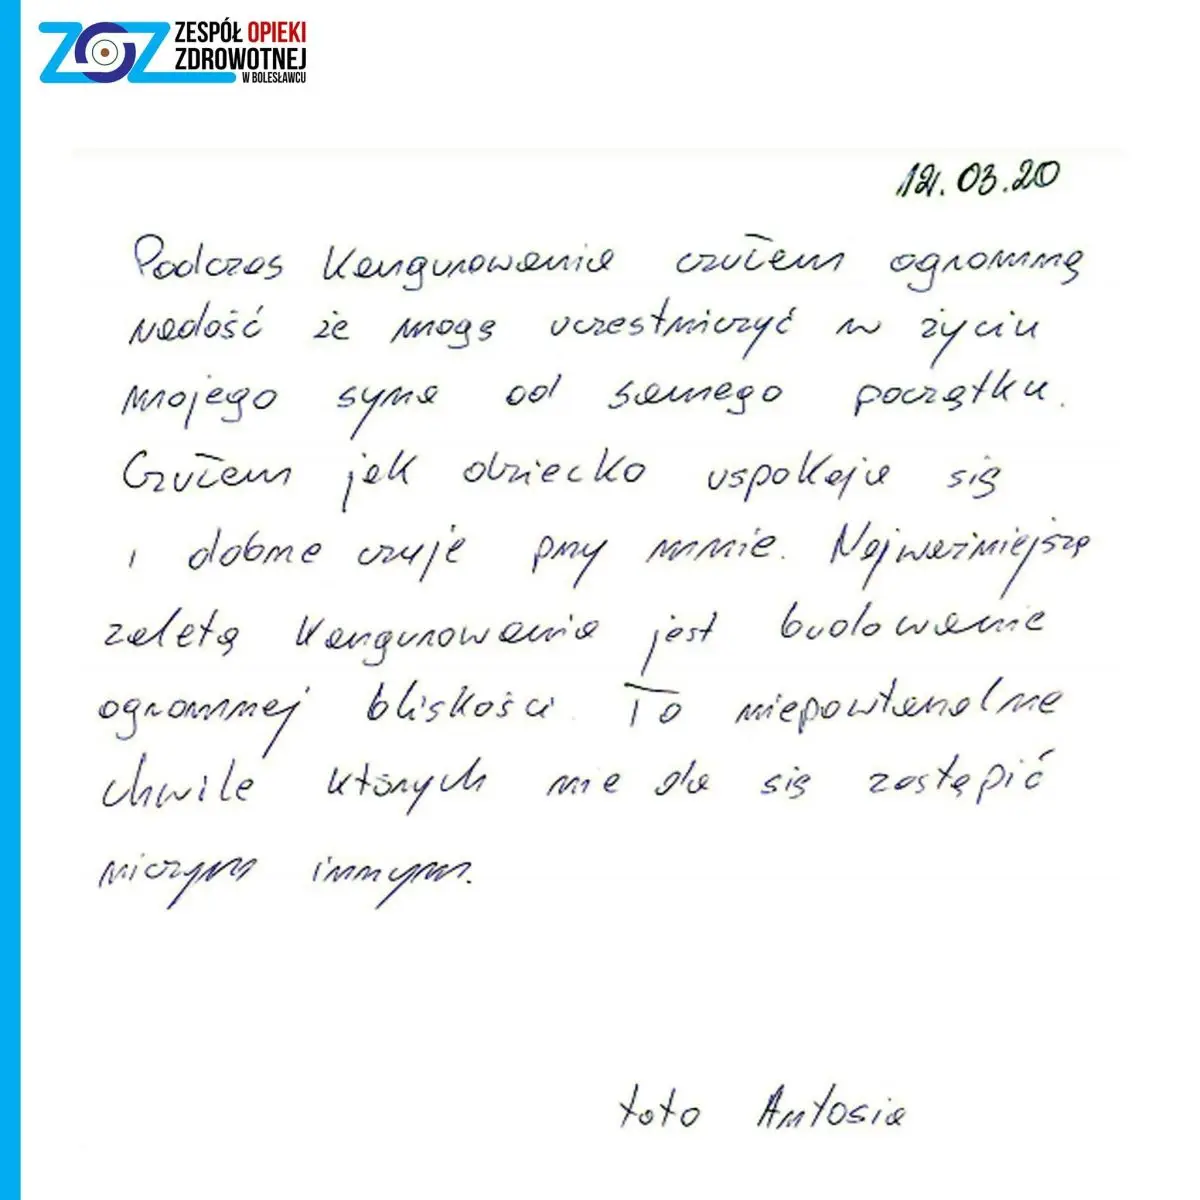 ZESPÓŁ OPIEKI
ZDROWOTNEJ
W BOLESŁAWCU
12.03.20
Podczas kangurowania czułem ogromną
radość że mogę uczestniczyć w życiu
mojego syna od samego początku.
Czułem jak dziecko uspokaja się
i dobrze czuje przy mnie. Najważniejszą
zaletą kangurowania jest budowanie
ogromnej bliskości. To niepowtarzalne
chwile których nie da się zastąpić
niczym innym.
tato Antosia